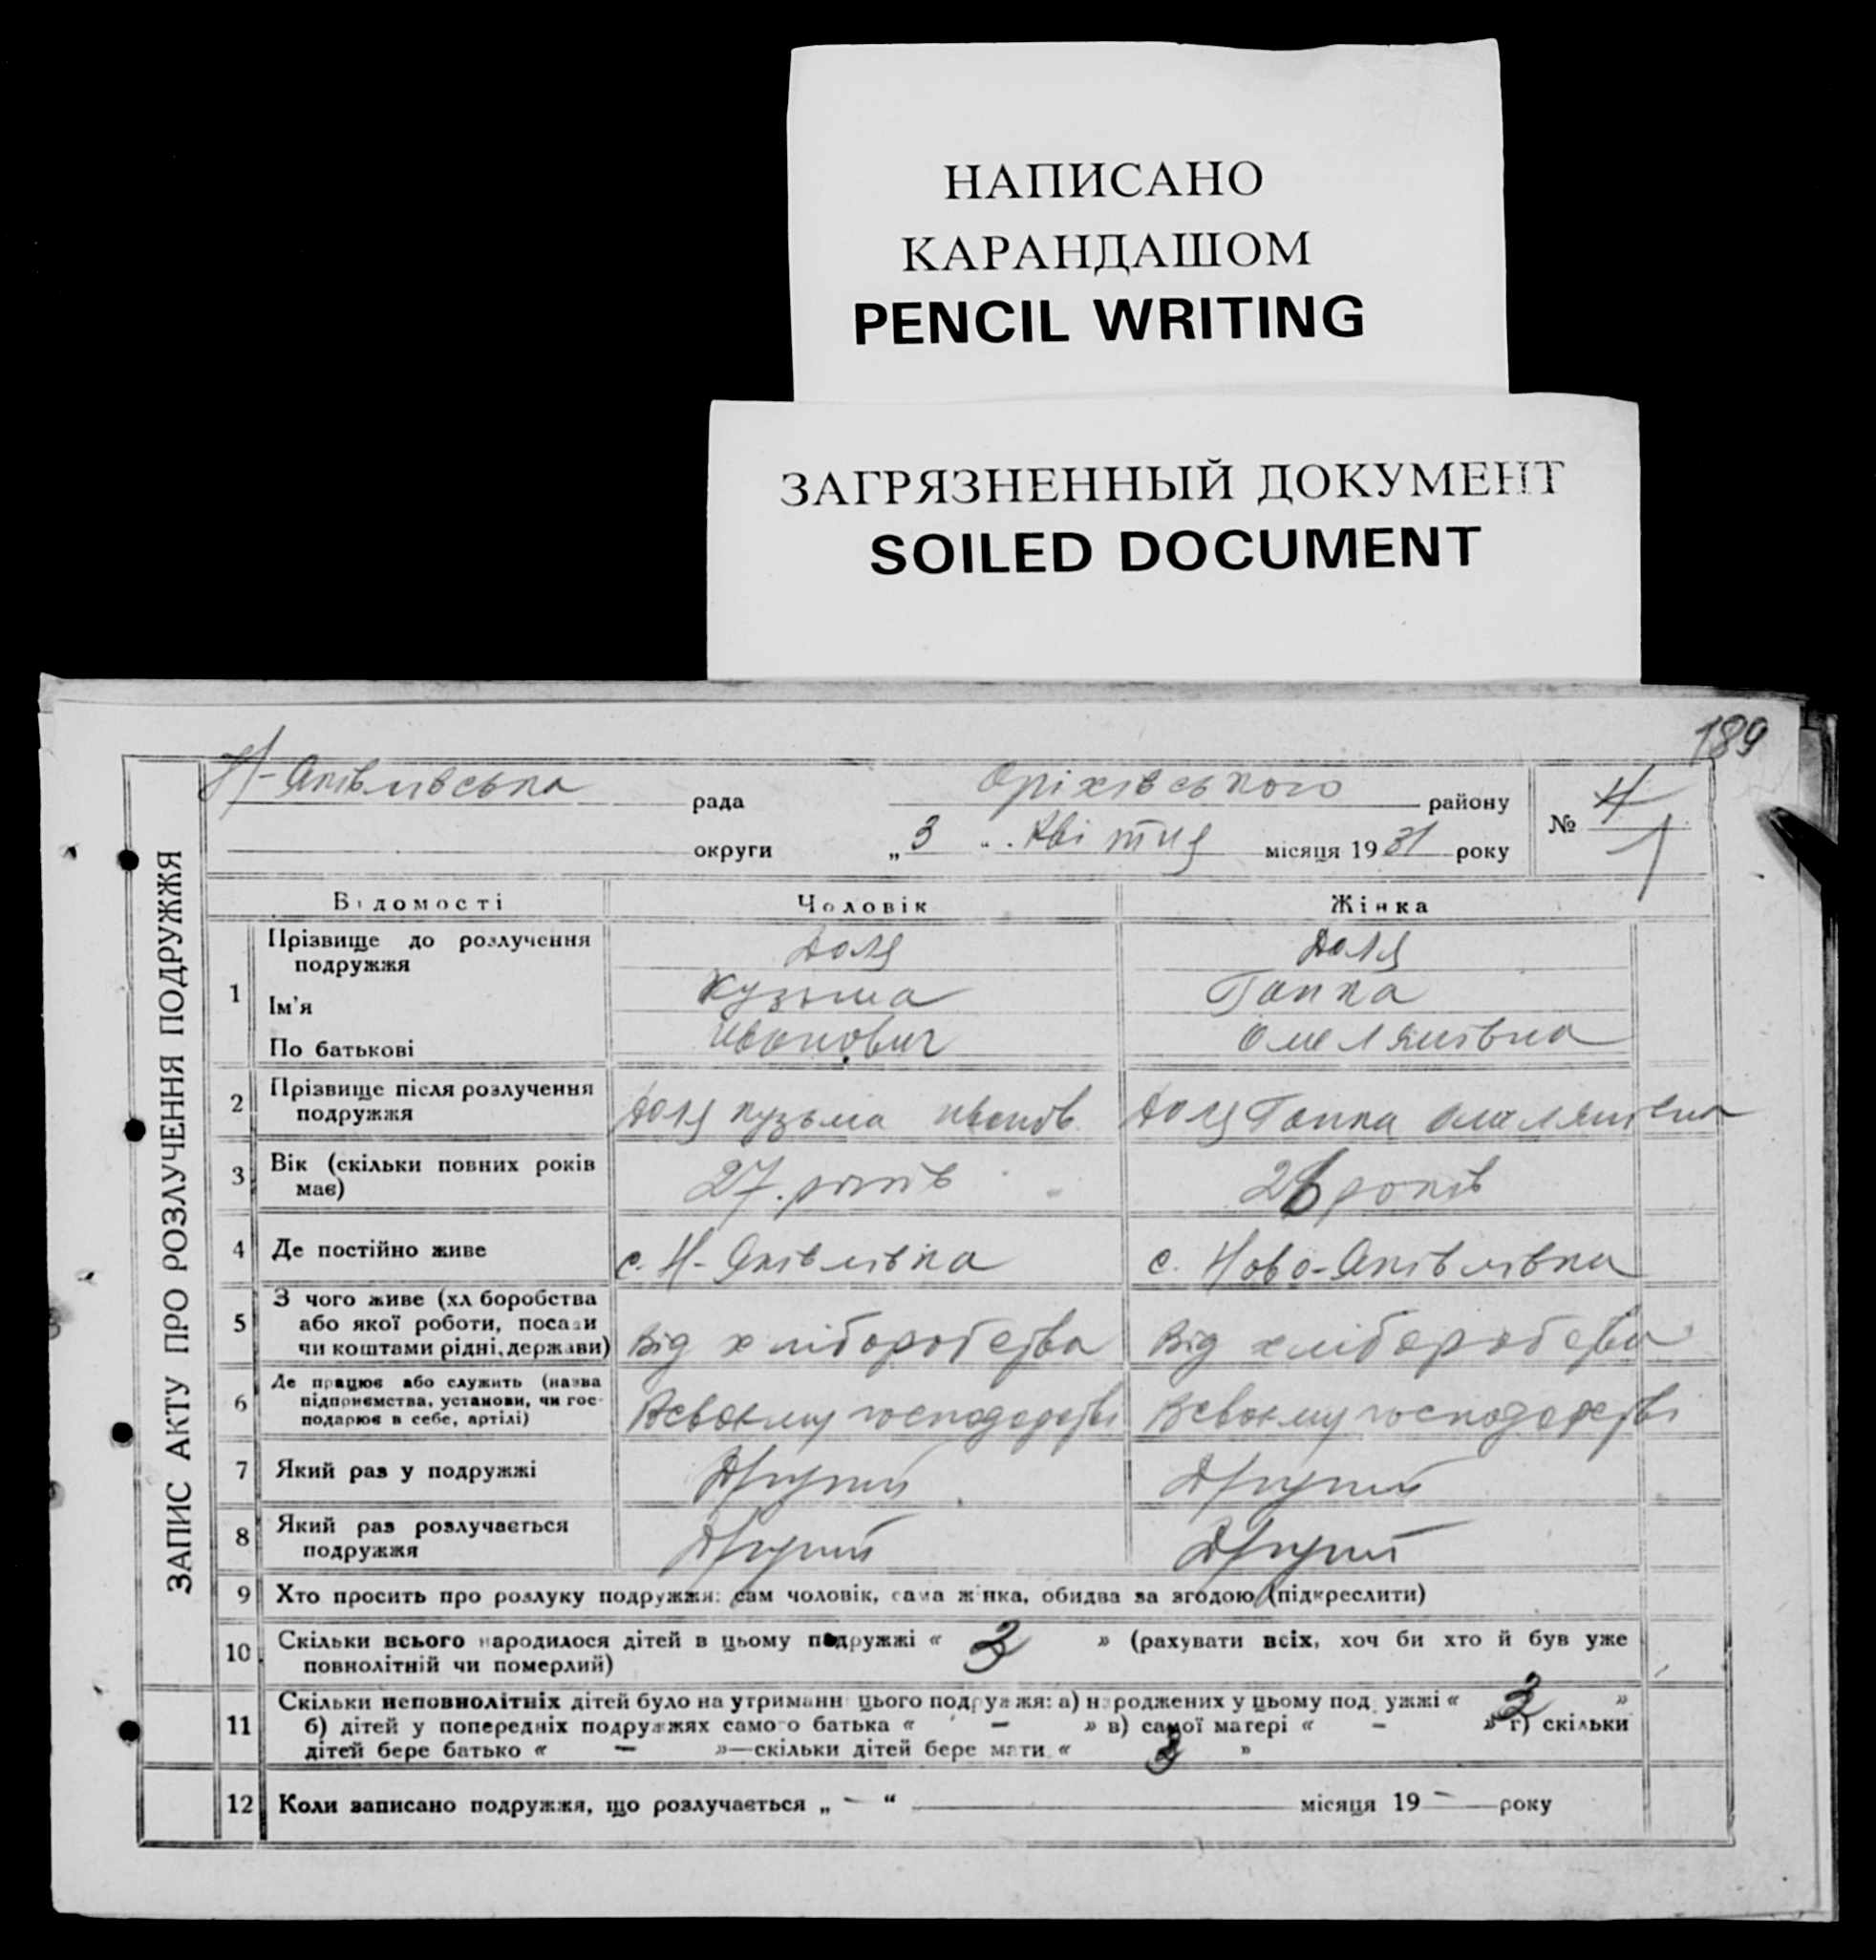 НАПИСАНО
КАРАНДАШОМ
PENCIL WRITING
ЗАГРЯЗНЕННЫЙ ДОКУМЕНТ
SOILED DOCUMENT
189
ЗАПИС АКТУ ПРО РОЗЛУЧЕННЯ ПОДРУЖЖЯ
Н-Яківлівська рада Оріхівського району
округи „3" Квітня місяця 1931 року
№ 4
1
Відомості Чоловік Жінка
1 Прізвище до розлучення подружжя Доля Доля
Ім'я Кузьма Гапка
По батькові Иванович Омелянівна
2 Прізвище після розлучення подружжя Доля Кузьма Иванов. Доля Гапка Омелянівна
3 Вік (скільки повних років має) 27 років 26 років
4 Де постійно живе с. Н-Яківлівка с. Ново-Яківлівка
5 З чого живе (хліборобства або якої роботи, посади чи коштами рідні, держави) Від хліборобства Від хліборобства
6 Де працює або служить (назва підприємства, установи, чи господарює в себе, артілі) В своєму господарстві В своєму господарстві
7 Який раз у подружжі Другий Другий
8 Який раз розлучається подружжя Другий Другий
9 Хто просить про розлуку подружжя: сам чоловік, сама жінка, обидва за згодою (підкреслити)
10 Скільки всього народилося дітей в цьому подружжі « » (рахувати всіх, хоч би хто й був уже
повнолітній чи померлий)
11 Скільки неповнолітніх дітей було на утриманні цього подружжя: а) народжених у цьому подружжі « »
б) дітей у попередніх подружжях самого батька « – » в) самої матері « – » г) скільки
дітей бере батько « – »—скільки дітей бере мати « »
12 Коли записано подружжя, що розлучається „ – “ місяця 19 – року